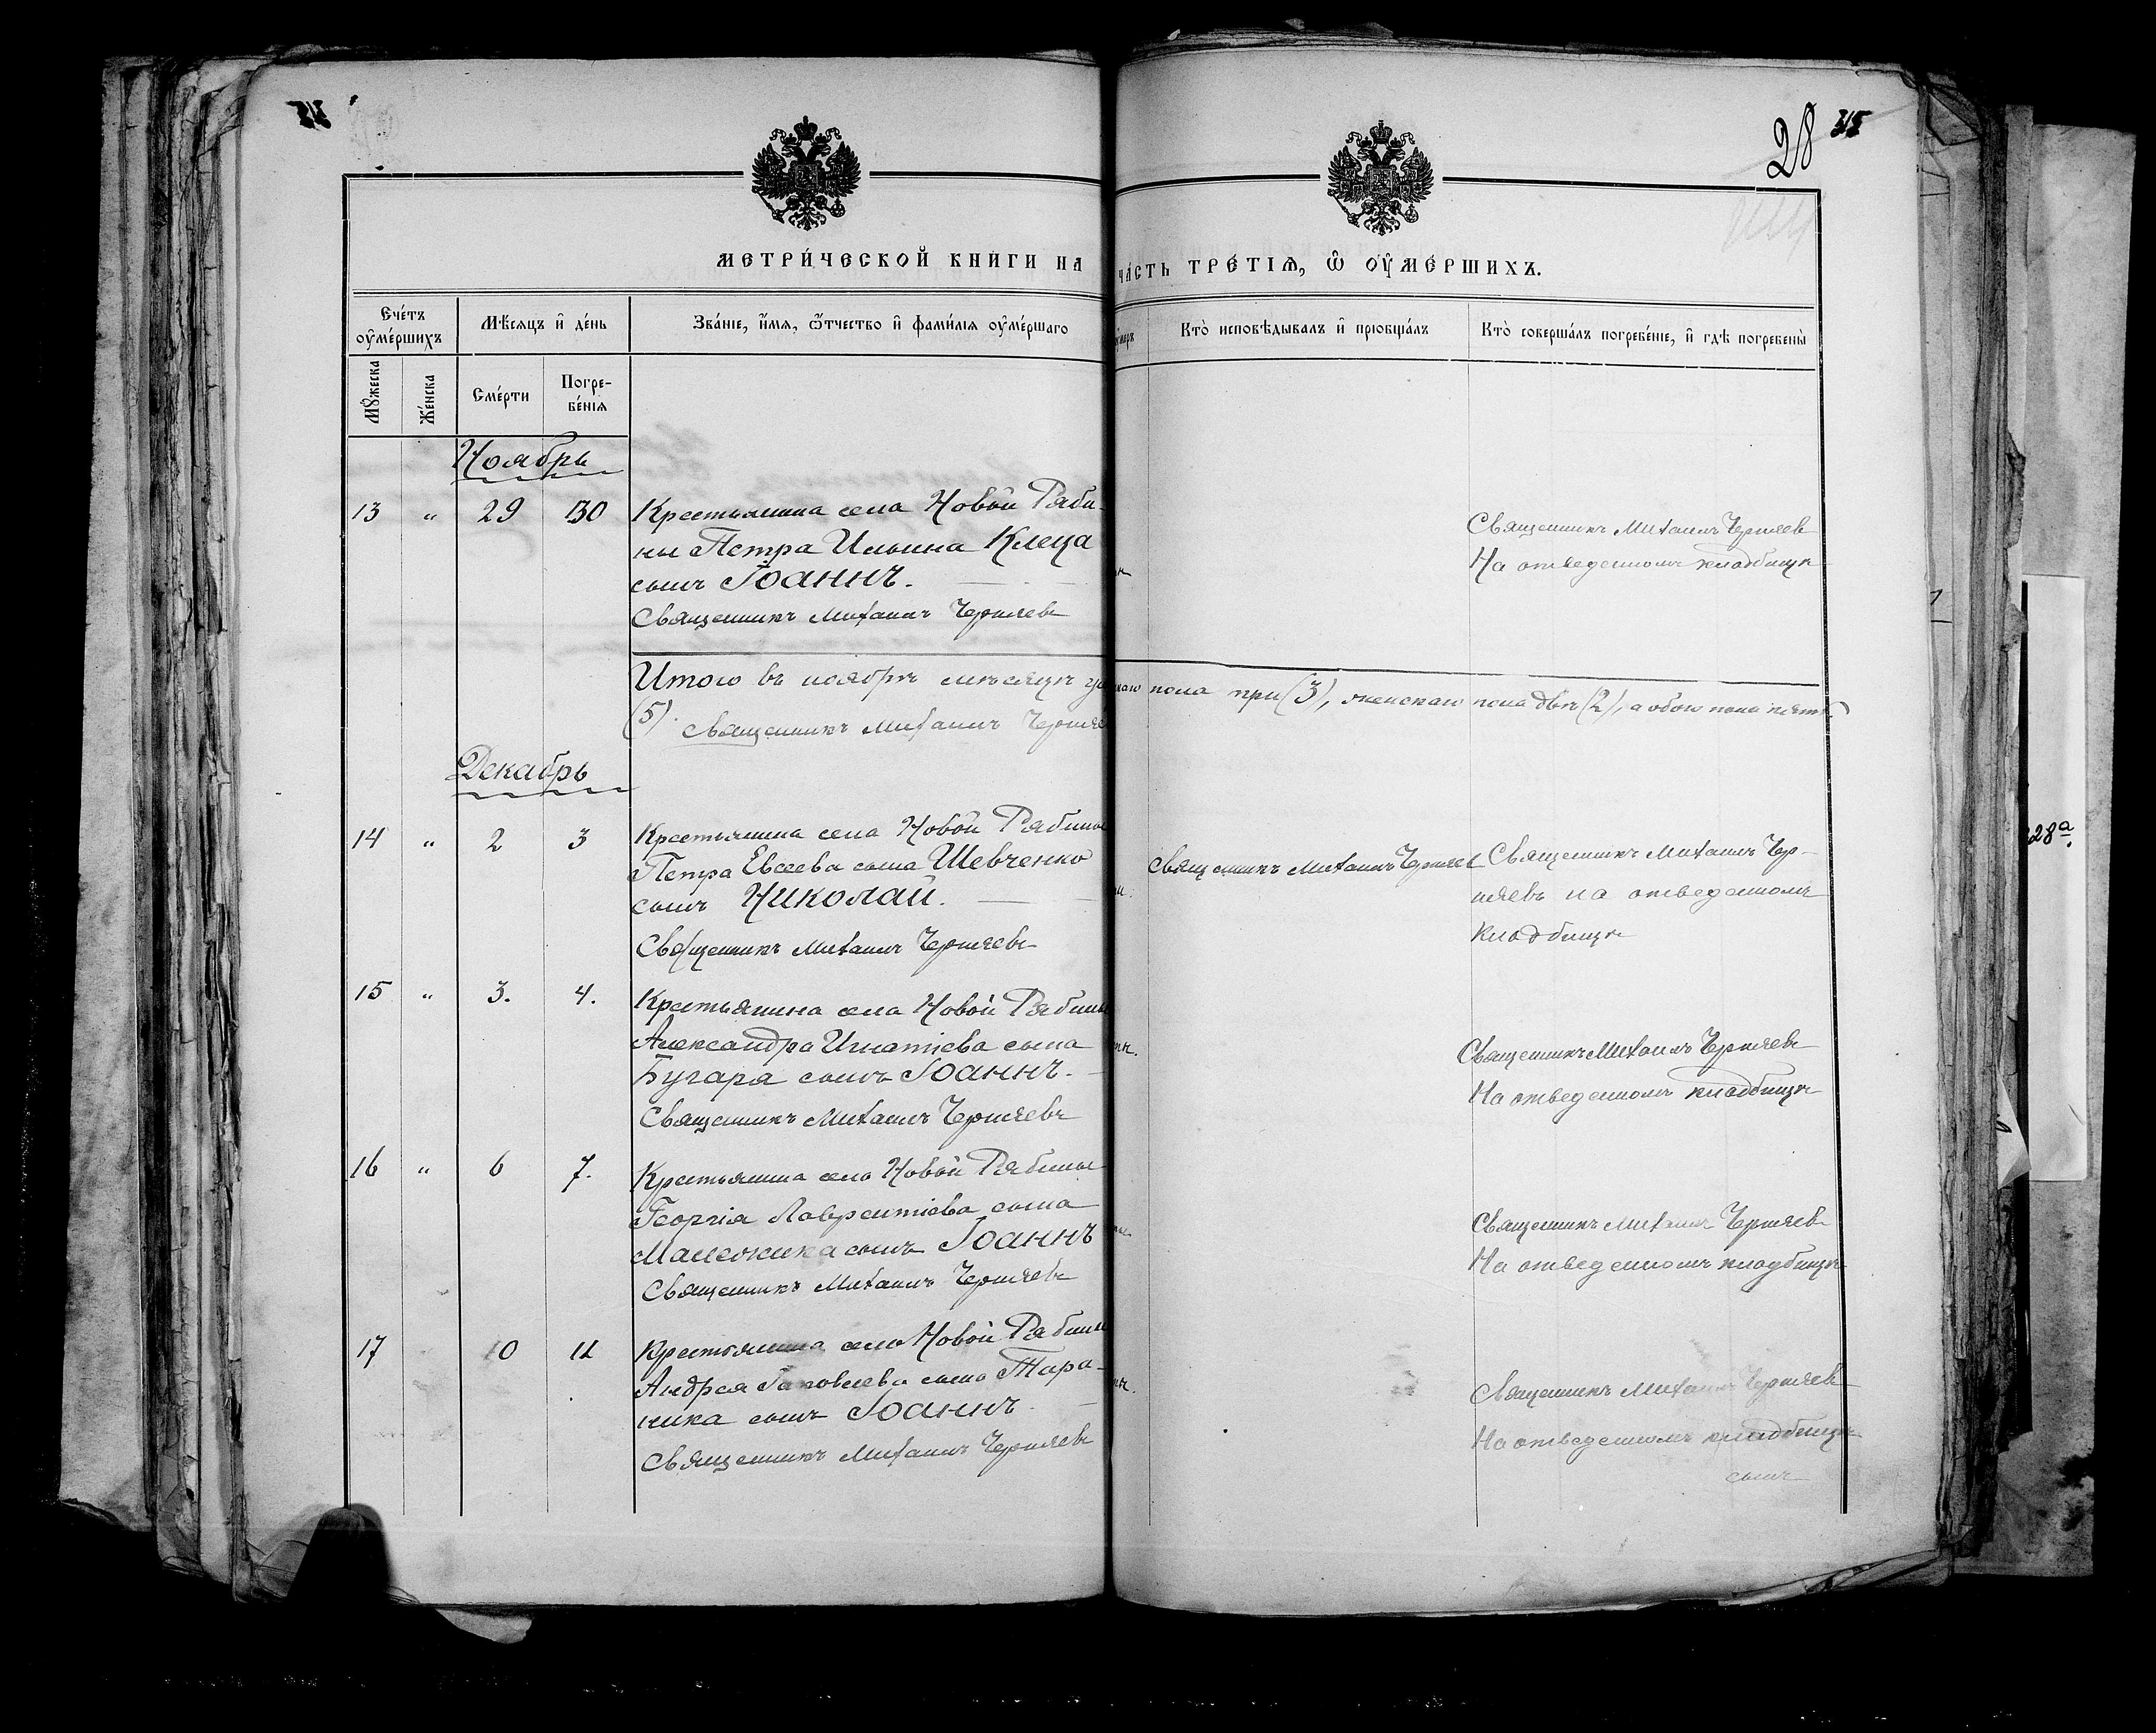 28
МЕТРИ́ЧЕСКОЙ КНИГИ НА
ЧА́СТЬ ТРЕ́ТІѦ, Ѿ ОУ҆МЕ́РШИХЪ.
Сче́тъ оу҆ме́ршихъ
Мѣ́сяцъ и҆ де́нь
Зва́ніе, и҆́мя, ѻ҆́тчество и҆ фами́лія оу҆ме́ршаго
Кто̀ исповѣ́дывалъ и҆ прїобща́лъ
Кто̀ соверша́лъ погребе́ніе, и҆ гдѣ̀ погребены̀
Мꙋ́жеска
Же́нска
Сме́рти
Погре-
бе́нія
Ноябрь
13 " 29 30
Крестьянина села Новой Ряби-
ны Петра Ильина Клеца
сынъ Іоаннъ.
Священникъ Михаилъ Черняевъ
Священникъ Михаилъ Черняев
На отведенномъ кладбищѣ
Итого въ ноябрѣ мѣсяцѣ
пола три (3), женскаго пола двѣ (2), а обоего пола пять
(5). Священникъ Михаилъ Черняе
Декабрь
14 " 2 3
Крестьянина села Новой Рябины
Петра Евсеева сына Шевченко
сынъ Николай.
Священникъ Михаилъ Черняевъ
Священникъ Михаилъ Черняев
Священникъ Михаилъ Чер-
няевъ на отведенномъ
кладбищѣ
15 " 3. 4.
Крестьянина села Новой Рябины
Александра Игнатіева сына
Бугаря сынъ Іоаннъ.
Священникъ Михаилъ Черняевъ
Священникъ Михаилъ Черняевъ
На отведенномъ кладбищѣ
16 " 6 7.
Крестьянина села Новой Рябины
Георгія Лаврентіева сына
сынъ Іоаннъ
Священникъ Михаилъ Черняевъ
Священникъ Михаилъ Черняевъ
На отведенномъ кладбищѣ
17 10 11
Крестьянина села Новой Рябины
Андрея Іаковлева сына Тара-
ника сынъ Іоаннъ
Священникъ Михаилъ Черняевъ
Священникъ Михаилъ Черняевъ
На отведенномъ кладбищѣ
сынъ
28а